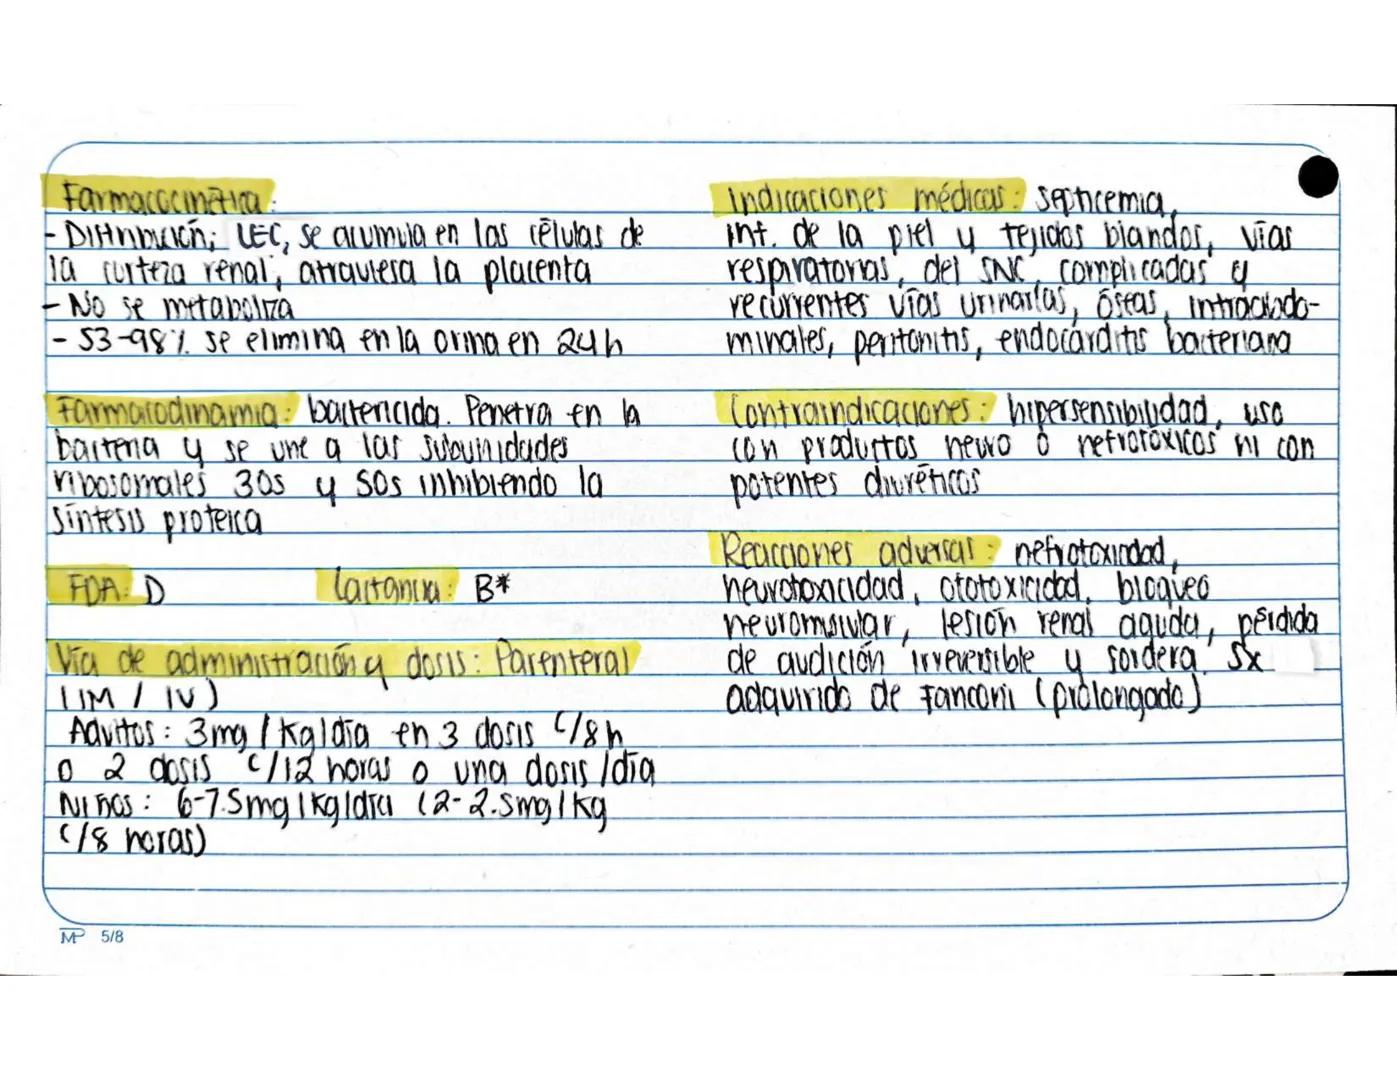 Farmacocinética:
- Distribución; LEC, se acumula en las células de
la corteza renal, atraviesa la placenta
- No se metaboliza
- 53-98% se elimina en la orina en 24h
Farmacodinamia: bactericida. Penetra en la
bacteria y se une a las subunidades
ribosomales 30s y 50s inhibiendo la
síntesis proteica
FDA: D Lactancia: B*
Vía de administración y dosis: Parenteral
(IM / IV)
Adultos: 3mg/kg/día en 3 dosis c/8h
o 2 dosis c/12 horas o una dosis/día
Niños: 6-7.5mg/kg/día (2-2.5mg/kg
c/8 horas)
Indicaciones médicas: septicemia,
inf. de la piel y tejidos blandos, vías
respiratorias, del SNC, complicadas y
recurrentes vías urinarias, óseas, intraabdo-
minales, peritonitis, endocárditis bacteriana
Contraindicaciones: hipersensibilidad, uso
con productos neuro o nefrotóxicos ni con
potentes diuréticos
Reacciones adversas: nefrotoxicidad,
neurotoxicidad, ototoxicidad, bloqueo
neuromuscular, lesión renal aguda, pérdida
de audición irreversible y sordera Sx
adquirido de Fanconi (prolongado)
MP 5/8